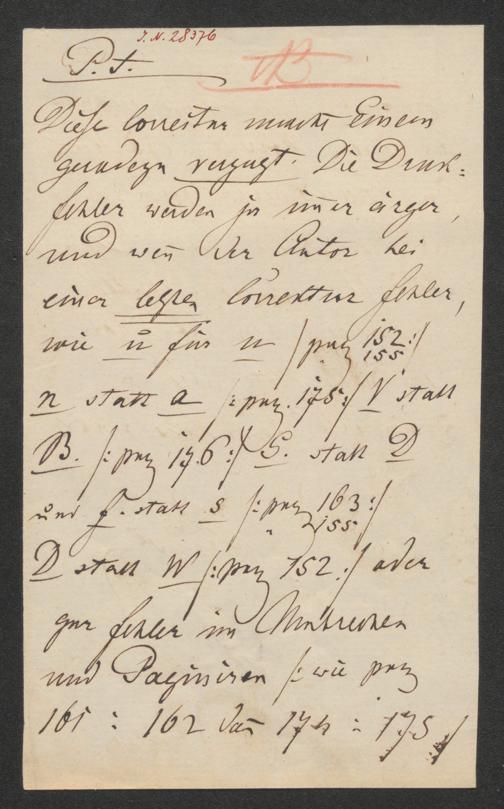 J. N. 28376
P. T.
Diese Correctur macht Einem
geradezu verzagt. Die Druck=
fehler werden ja im̄er ärger,
und wen̄ der Autor bei
einer letzten Correktur Fehler,
wie ü für u /: pag 152 :/
155
n statt a /: pag. 175 :/ V statt
B. /: pag 176 :/ G. statt D
und f. statt s /: pag 163 :/
" 155
D statt W /: pag 152 :/ oder
gar Fehler im Umbrechen
und Paginiren /: wie pag
161 : 162 dan̄ 174 : 175 :/